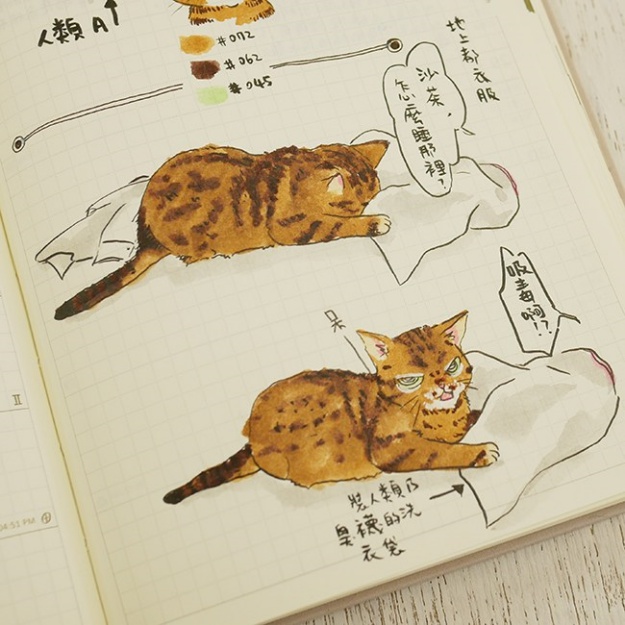 人類A
#072
#062
#045
地上都衣服
沙茶，
怎麼睡那裡？
吸毒啊!?
呆
裝人類乃
臭襪的洗
衣袋
II
04:51 PM